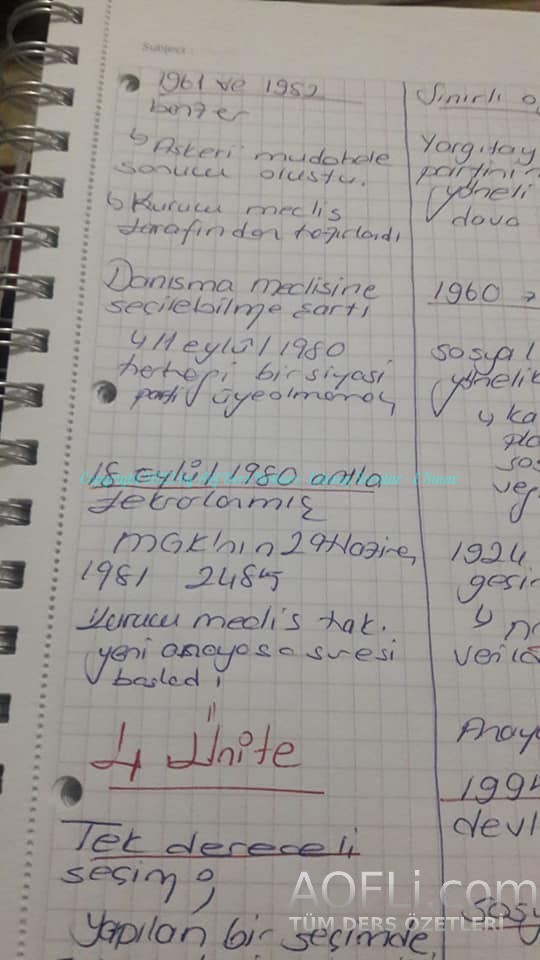 Subject:
1961 ve 1982
benzer
↳ Askeri mudahale
sonucu oluştu.
↳ Kurucu meclis
tarafından hazırladı
Danısma meclisine
seçilebilme şartı
↳ 11 eylül 1980
herhagi bir siyasi
parti üye olmamak
18 Eylül 1980 antla
tekrolanmış
MGK'nın 29 Haziran
1981 2485
Kurucu meclis hak.
yeni anayasa süresi
başladı
4 Ünite
Tek dereceli
seçim;
Yapılan bir seçimde,
Sınırlı
Yargıtay
partinin
yöneli
dava
1960 →
sosyal
yönelik
↳ ka
sos
1924
geçin
↳
verile
Anay
1994
devl
Sosy
AOFLi.com
TÜM DERS ÖZETLERİ